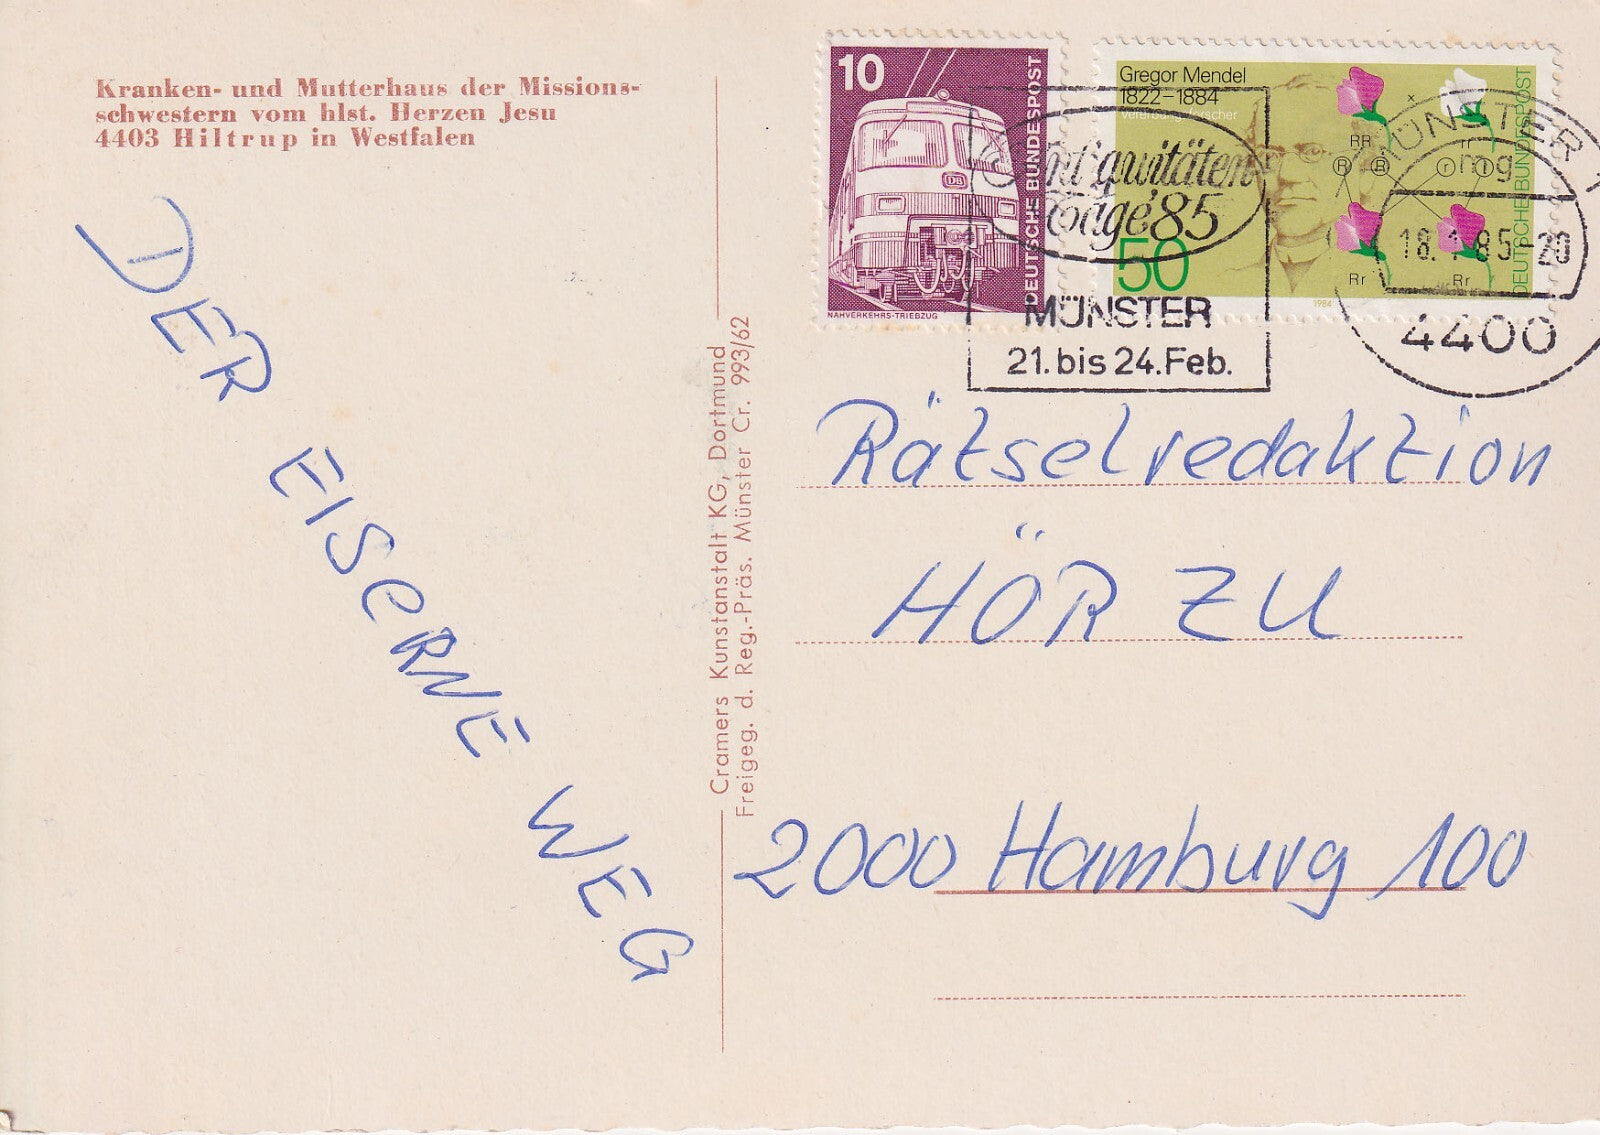 Kranken- und Mutterhaus der Missions-
schwestern vom hlst. Herzen Jesu
4403 Hiltrup in Westfalen
DER EISERNE WEG
Cramers Kunstanstalt KG, Dortmund
Freigeg. d. Reg.-Präs. Münster Cr. 993/62
10
DEUTSCHE BUNDESPOST
DB
NAHVERKEHRS-TRIEBZUG
Gregor Mendel
1822-1884
Vererbungsforscher
50
RR
x
rr
R R r r
Rr Rr
1984
DEUTSCHE BUNDESPOST
Antiquitäten
Tage'85
MÜNSTER
21. bis 24. Feb.
MÜNSTER 1
mg
18. 85-20
4400
Rätselredaktion
HÖR ZU
2000 Hamburg 100